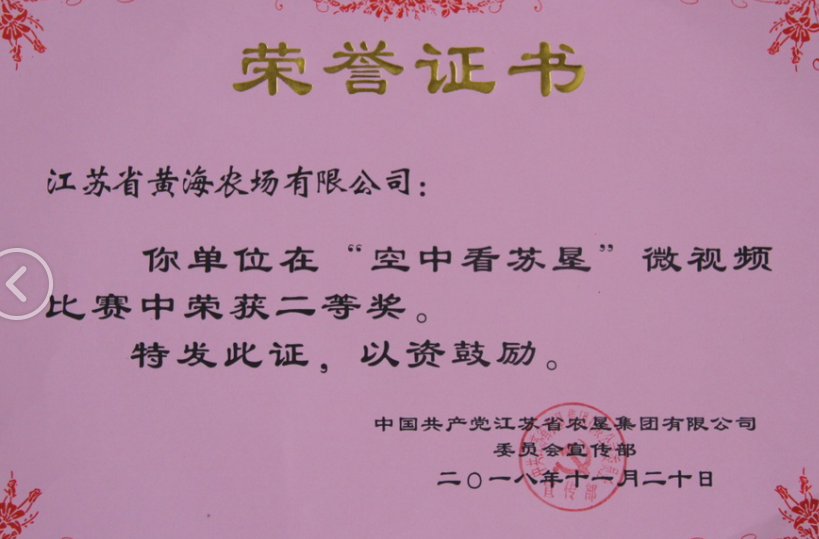 荣誉证书
江苏省黄海农场有限公司：
你单位在“空中看苏垦”微视频
比赛中荣获二等奖。
特发此证，以资鼓励。
中国共产党江苏省农垦集团有限公司
委员会宣传部
二〇一八年十一月二十日
宣传部